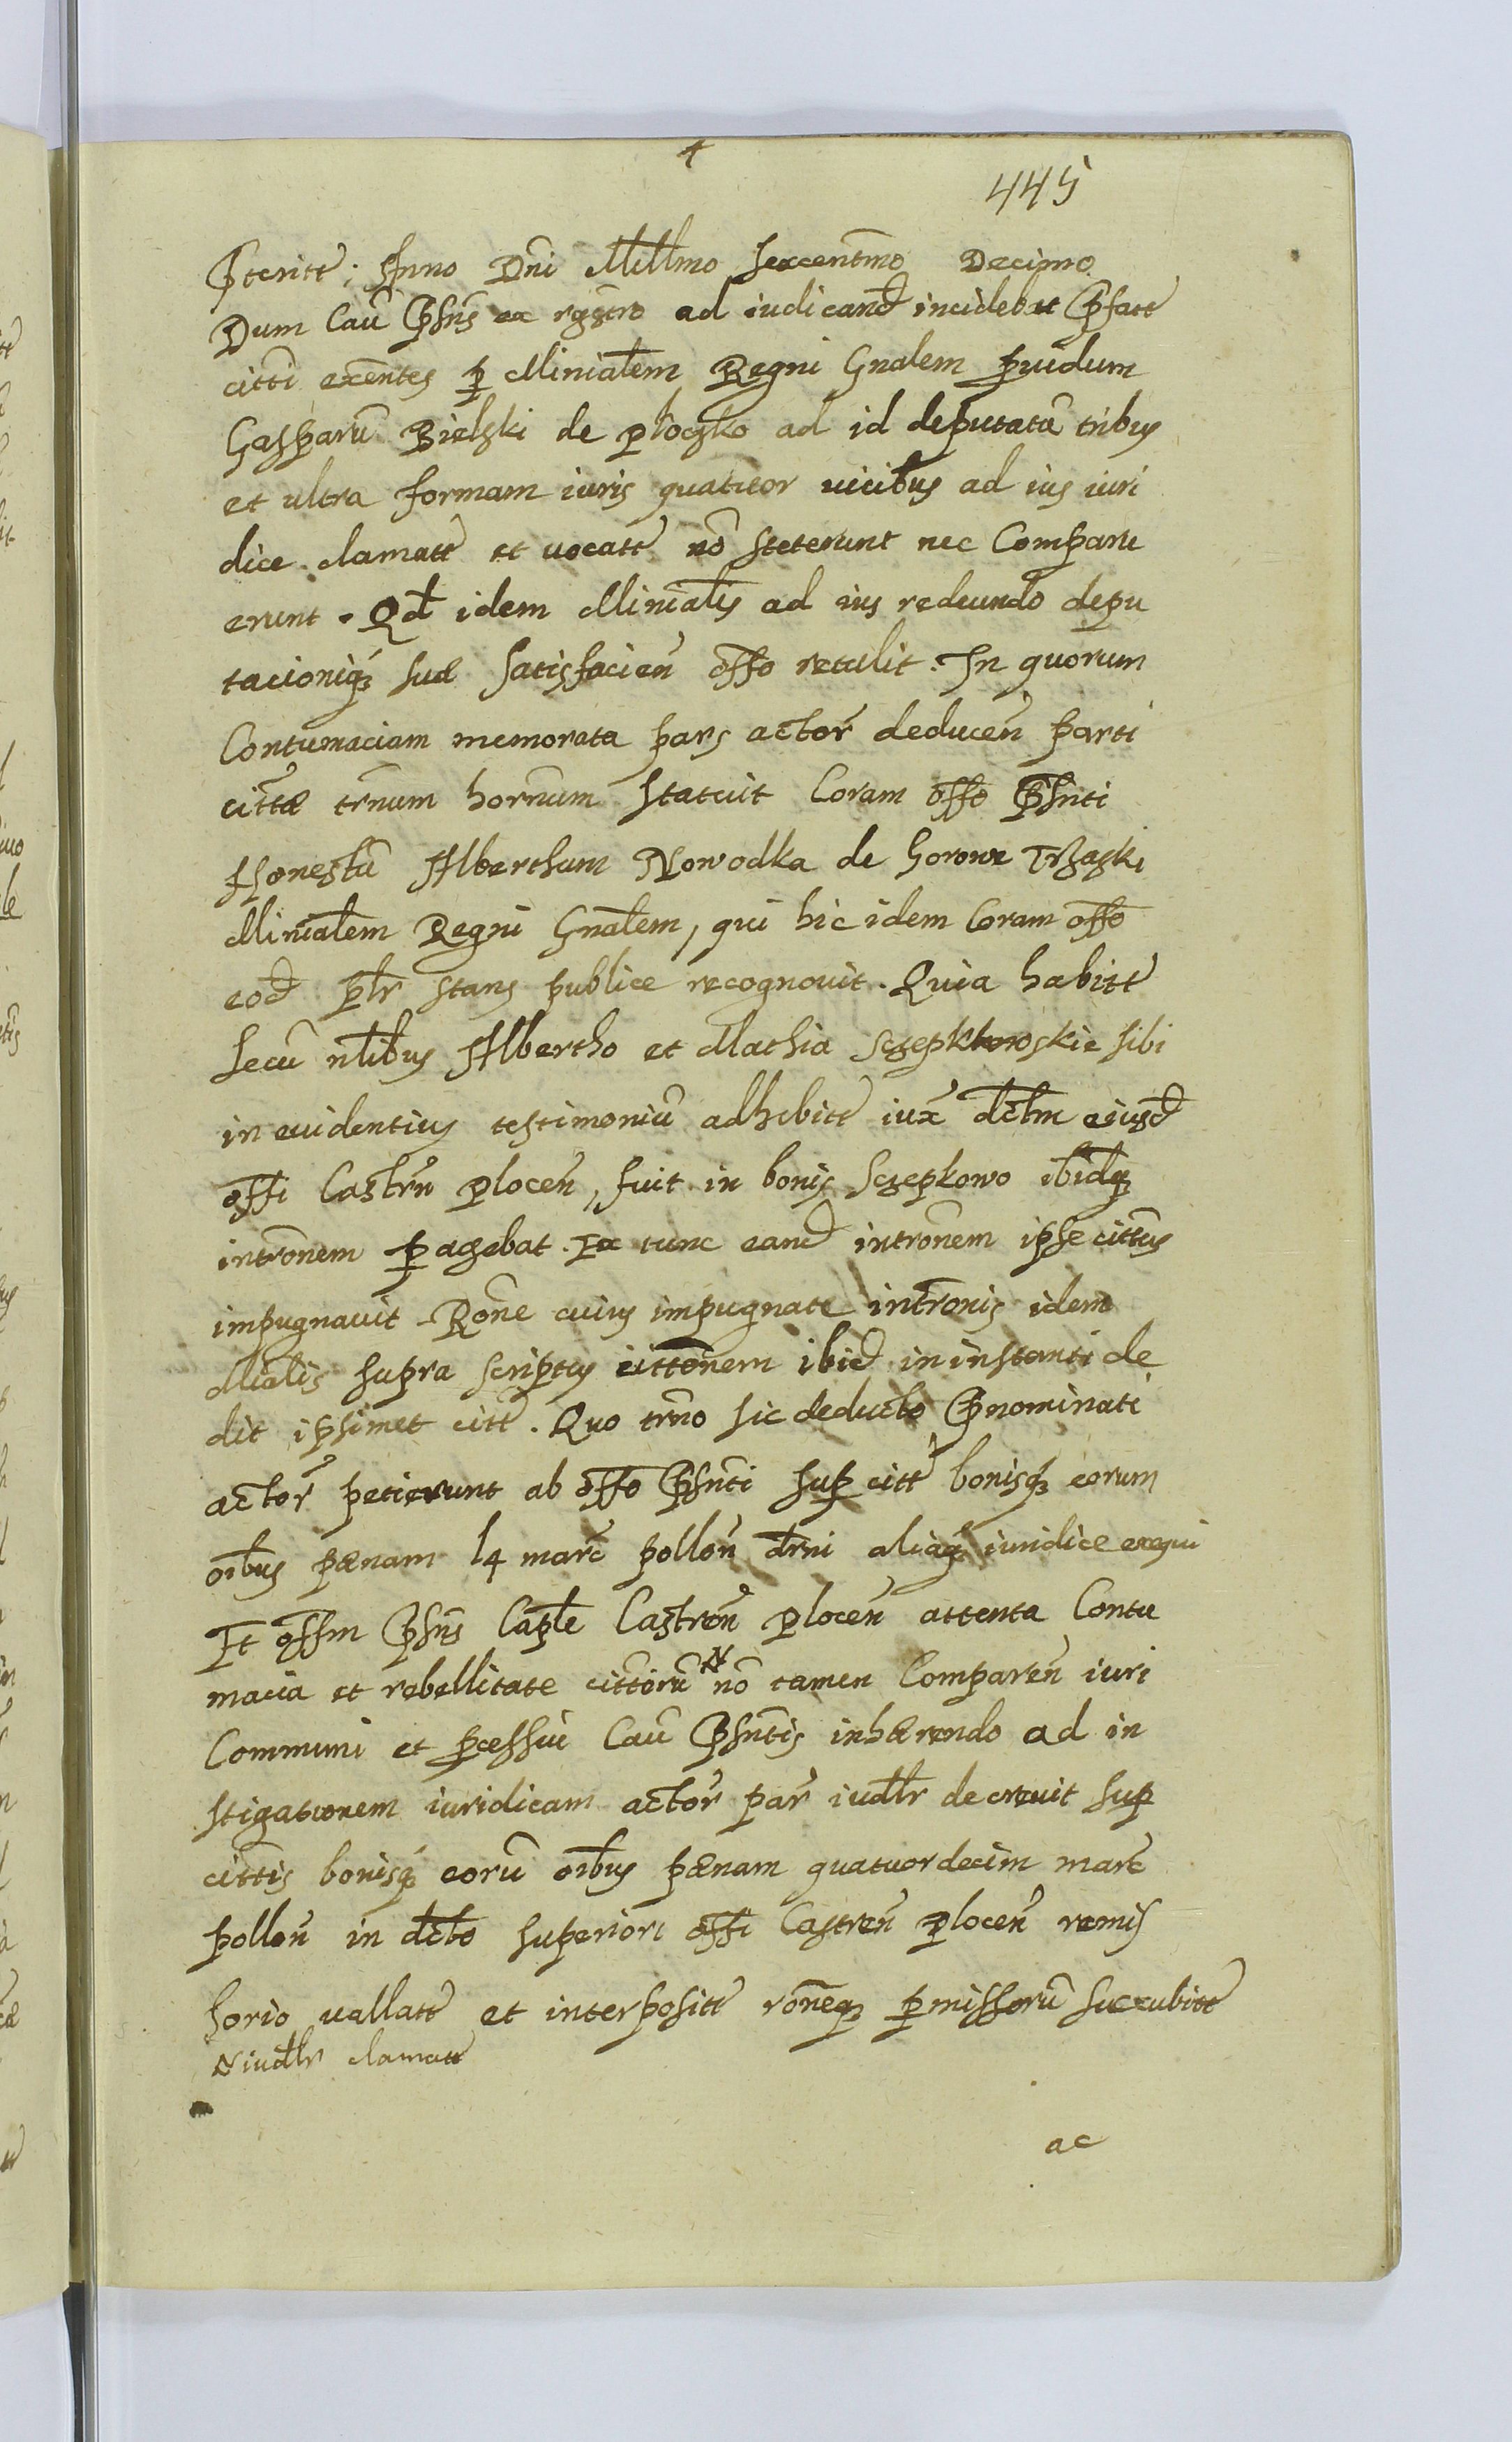 4
445
Pteritt; Anno Dni Millmo Sexcentmo Decimo
Dum Cau Psns ex rgstro ad iudicand incidebat Pfatt
citti exentes p Minialem Regni Gnalem puidum
Gasparu Bielski de Ploczko ad id deputatu tribus
et ultra formam iuris quatuor vicibus ad ius iuri
dice clamatt et vocatt no steterunt nec Comparu
erunt. Qd idem Minialis ad ius redeundo depu
tacioniq3 suæ satisfacien offo retulit. In quorum
Contumaciam memorata pars actor deducen parti
cittæ trnum hornum statuit Coram offo Psnti
Honestu Alberthum Nowodka de Gorowe Trzaski
Minialem Regni Gnalem, qui hic idem Coram offo
eod plr stans publice recognovit. Quia habitt
secu nlibus Albertho et Mathia Sczepkowskie sibi
in evidentius testimoniu adhibitt iux dctm eiusd
offi Castrn Plocen, fuit in bonis Sczepkowo ibidq3
intronem pagebat. Ex tunc eand intronem ipse cittus
impugnavit. Rone cuius impugnate intronis idem
Mialis supra scriptus cittonem ibid in instanti de
dit ipsimet citt. Quo trno sic deducto Pnominati
actor petierunt ab offo Psnti sup citt bonisq3 eorum
oibus pænam 14 marc pollon drni aliaq3 iuridice exequi
Et offm Psns Caple Castren Plocen attenta Contu
macia et rebellitate cittoru no tamen Comparen iuri
Communi et pcessui Cau Psntis inhærendo ad in
stigationem iuridicam actor par iudlr decrevit sup
cittis bonisq3 eoru oibus pænam quatuordecim marc
pollon in dcto superiori offi Castren Plocen remis
sorio vallatt et interpositt roneq3 pmissoru succubitt
iudlr clamatt
ac